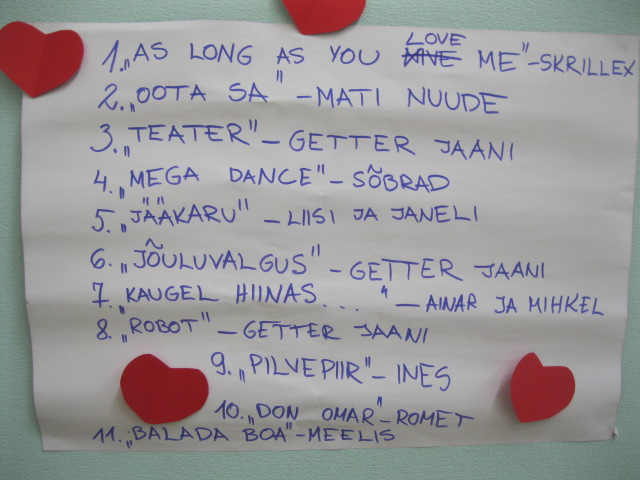 1. „AS LONG AS YOU LOVE ME" - SKRILLEX
2. „OOTA SA" - MATI NUUDE
3. „TEATER" - GETTER JAANI
4. „MEGA DANCE" - SÕBRAD
5. „JÄÄKARU" - LIISI JA JANELI
6. „JÕULUVALGUS" - GETTER JAANI
7. „KAUGEL HIINAS...." - AINAR JA MIHKEL
8. „ROBOT" - GETTER JAANI
9. „PILVEPIIR" - INES
10. „DON OMAR" - ROMET
11. „BALADA BOA" - MEELIS